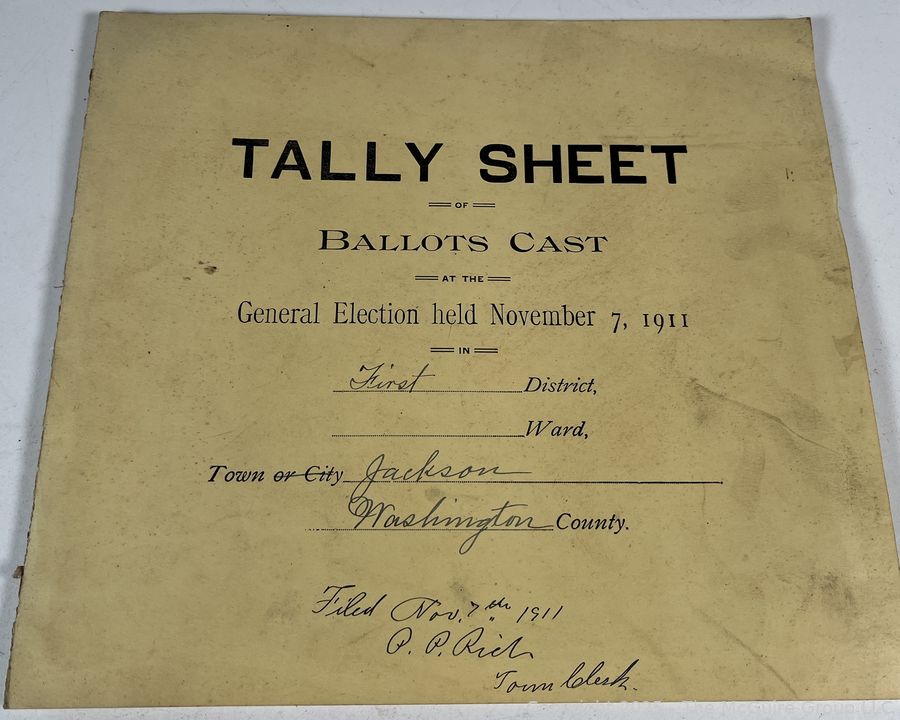 TALLY SHEET
OF
BALLOTS CAST
AT THE
General Election held November 7, 1911
IN
First District,
Ward,
Town or City Jackson
Washington County.
Filed Nov. 7th 1911
P. P. Rich
Town Clerk.
The McGuire Group LLC